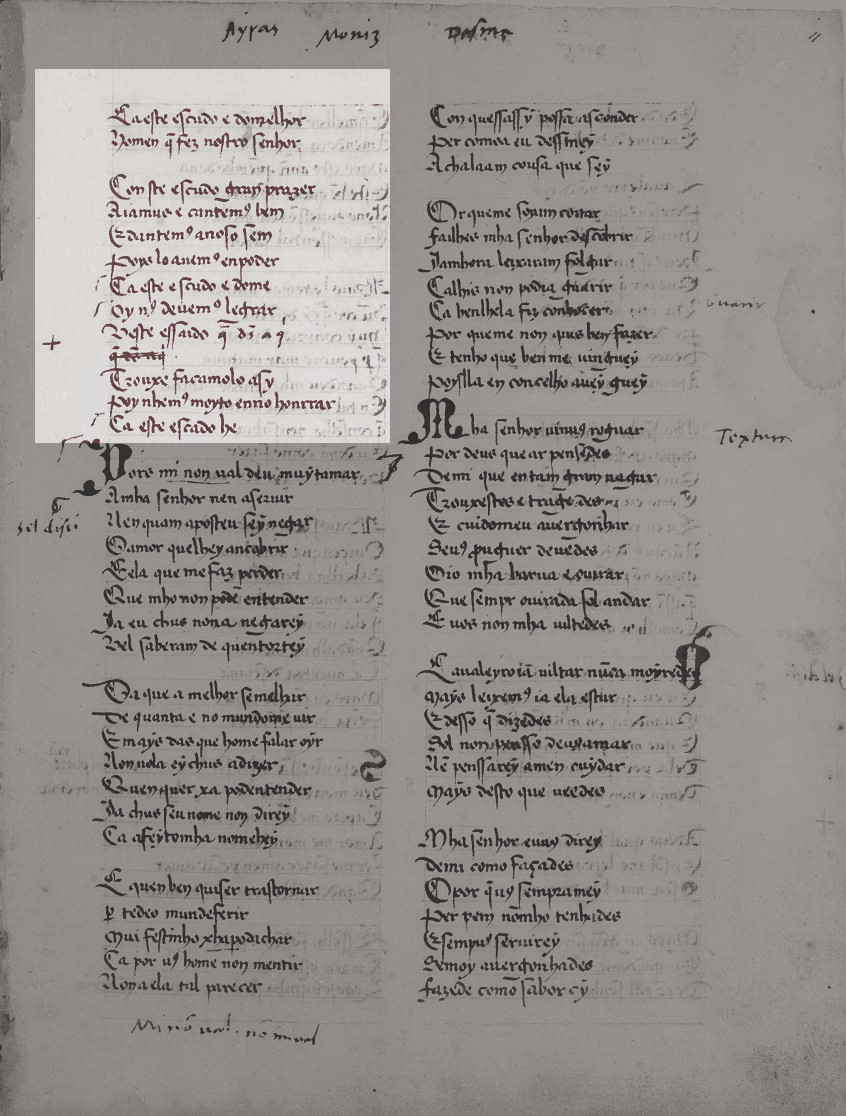 Ayras Moniz Dasme
Ca este escudo e domelhor
Homen q̄ fez nostro senhor
Con ste escudo gram prazer
Aiamus e cantemꝰ bem
E dantemꝰ anoso sem
Poys lo auemꝰ en poder
Ca este escudo e dome
Oy nꝰ deuemꝰ legrar
Deste essaudo q̄ ds̄ a q̇
Trouxe facamolo assy
Poynhemꝰ moyto enno honrrar
Ca este escudo he
Pois mi non ual deu muyt amar
Amha senhor nen a seruir
Nen quam aposteu sey negar
O amor quelhey ancobrir
E ela que me faz perder
Que mho non pode entender
Ia eu chus nona negarey
Vel saberam de quentortey
Da que a melhor semelhar
De quanta e no mundome uir
E mays das que home falar oyr
Non uola ey chus adizer
Quen quer xa podentender
Ia chus seu nome non direy
Ca afeytomha nomehey
E quen ben quiser trastornar
ꝑ tedeo mundeferir
Mui festinho xha podachar
Ca por uꝰ home non mentir
Non a ela tal parecer
Con quessassy possa asconder
Per comea eu dessiney
Achalaam cousa que sey
Or queme soyam coitar
Failhes mha senhor descobrir
Iamhora leixaram folgar
Calhis non podia guarir
Ca benlhela fiz conhocer
Por queme non quis ben fazer
E tenho que ben me uinguey
Poyslla en concelho auey guey
Mha senhor uinuꝰ roguar
Por deus que ar pensedes
Demi que en tam gram uagar
Trouxestes e tragedes
E cuidomeu auergonhar
Seuꝰ prouguer deuedes
Oio mha barua e onrrar
Que sempr onrrada sol andar
E uos non mha uiltedes
Caualeyro ia uiltar nūca moyredes
Mays leixemꝰ ia ela estar
E desso q̄ dizedes
Sol non penssedeuꝰ amar
Nē penssarey amen cuydar
Mays desto que ueedes
Mha senhor euuꝰ direy
Demi como façades
O por q̄ uꝰ sempramey
Per rem nō mho tenhades
E sempuꝰ seruirey
Semoy auergonhades
Fazede como sabor ey